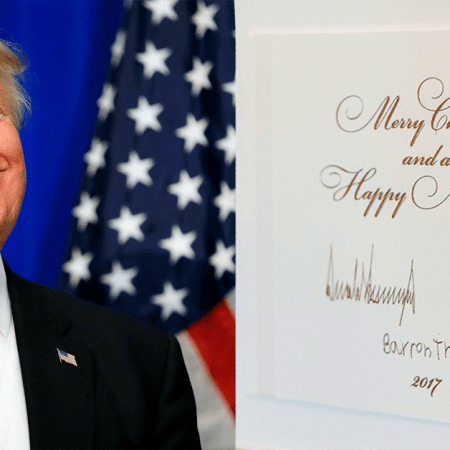 Merry C
and a
Happy
Barron T
2017